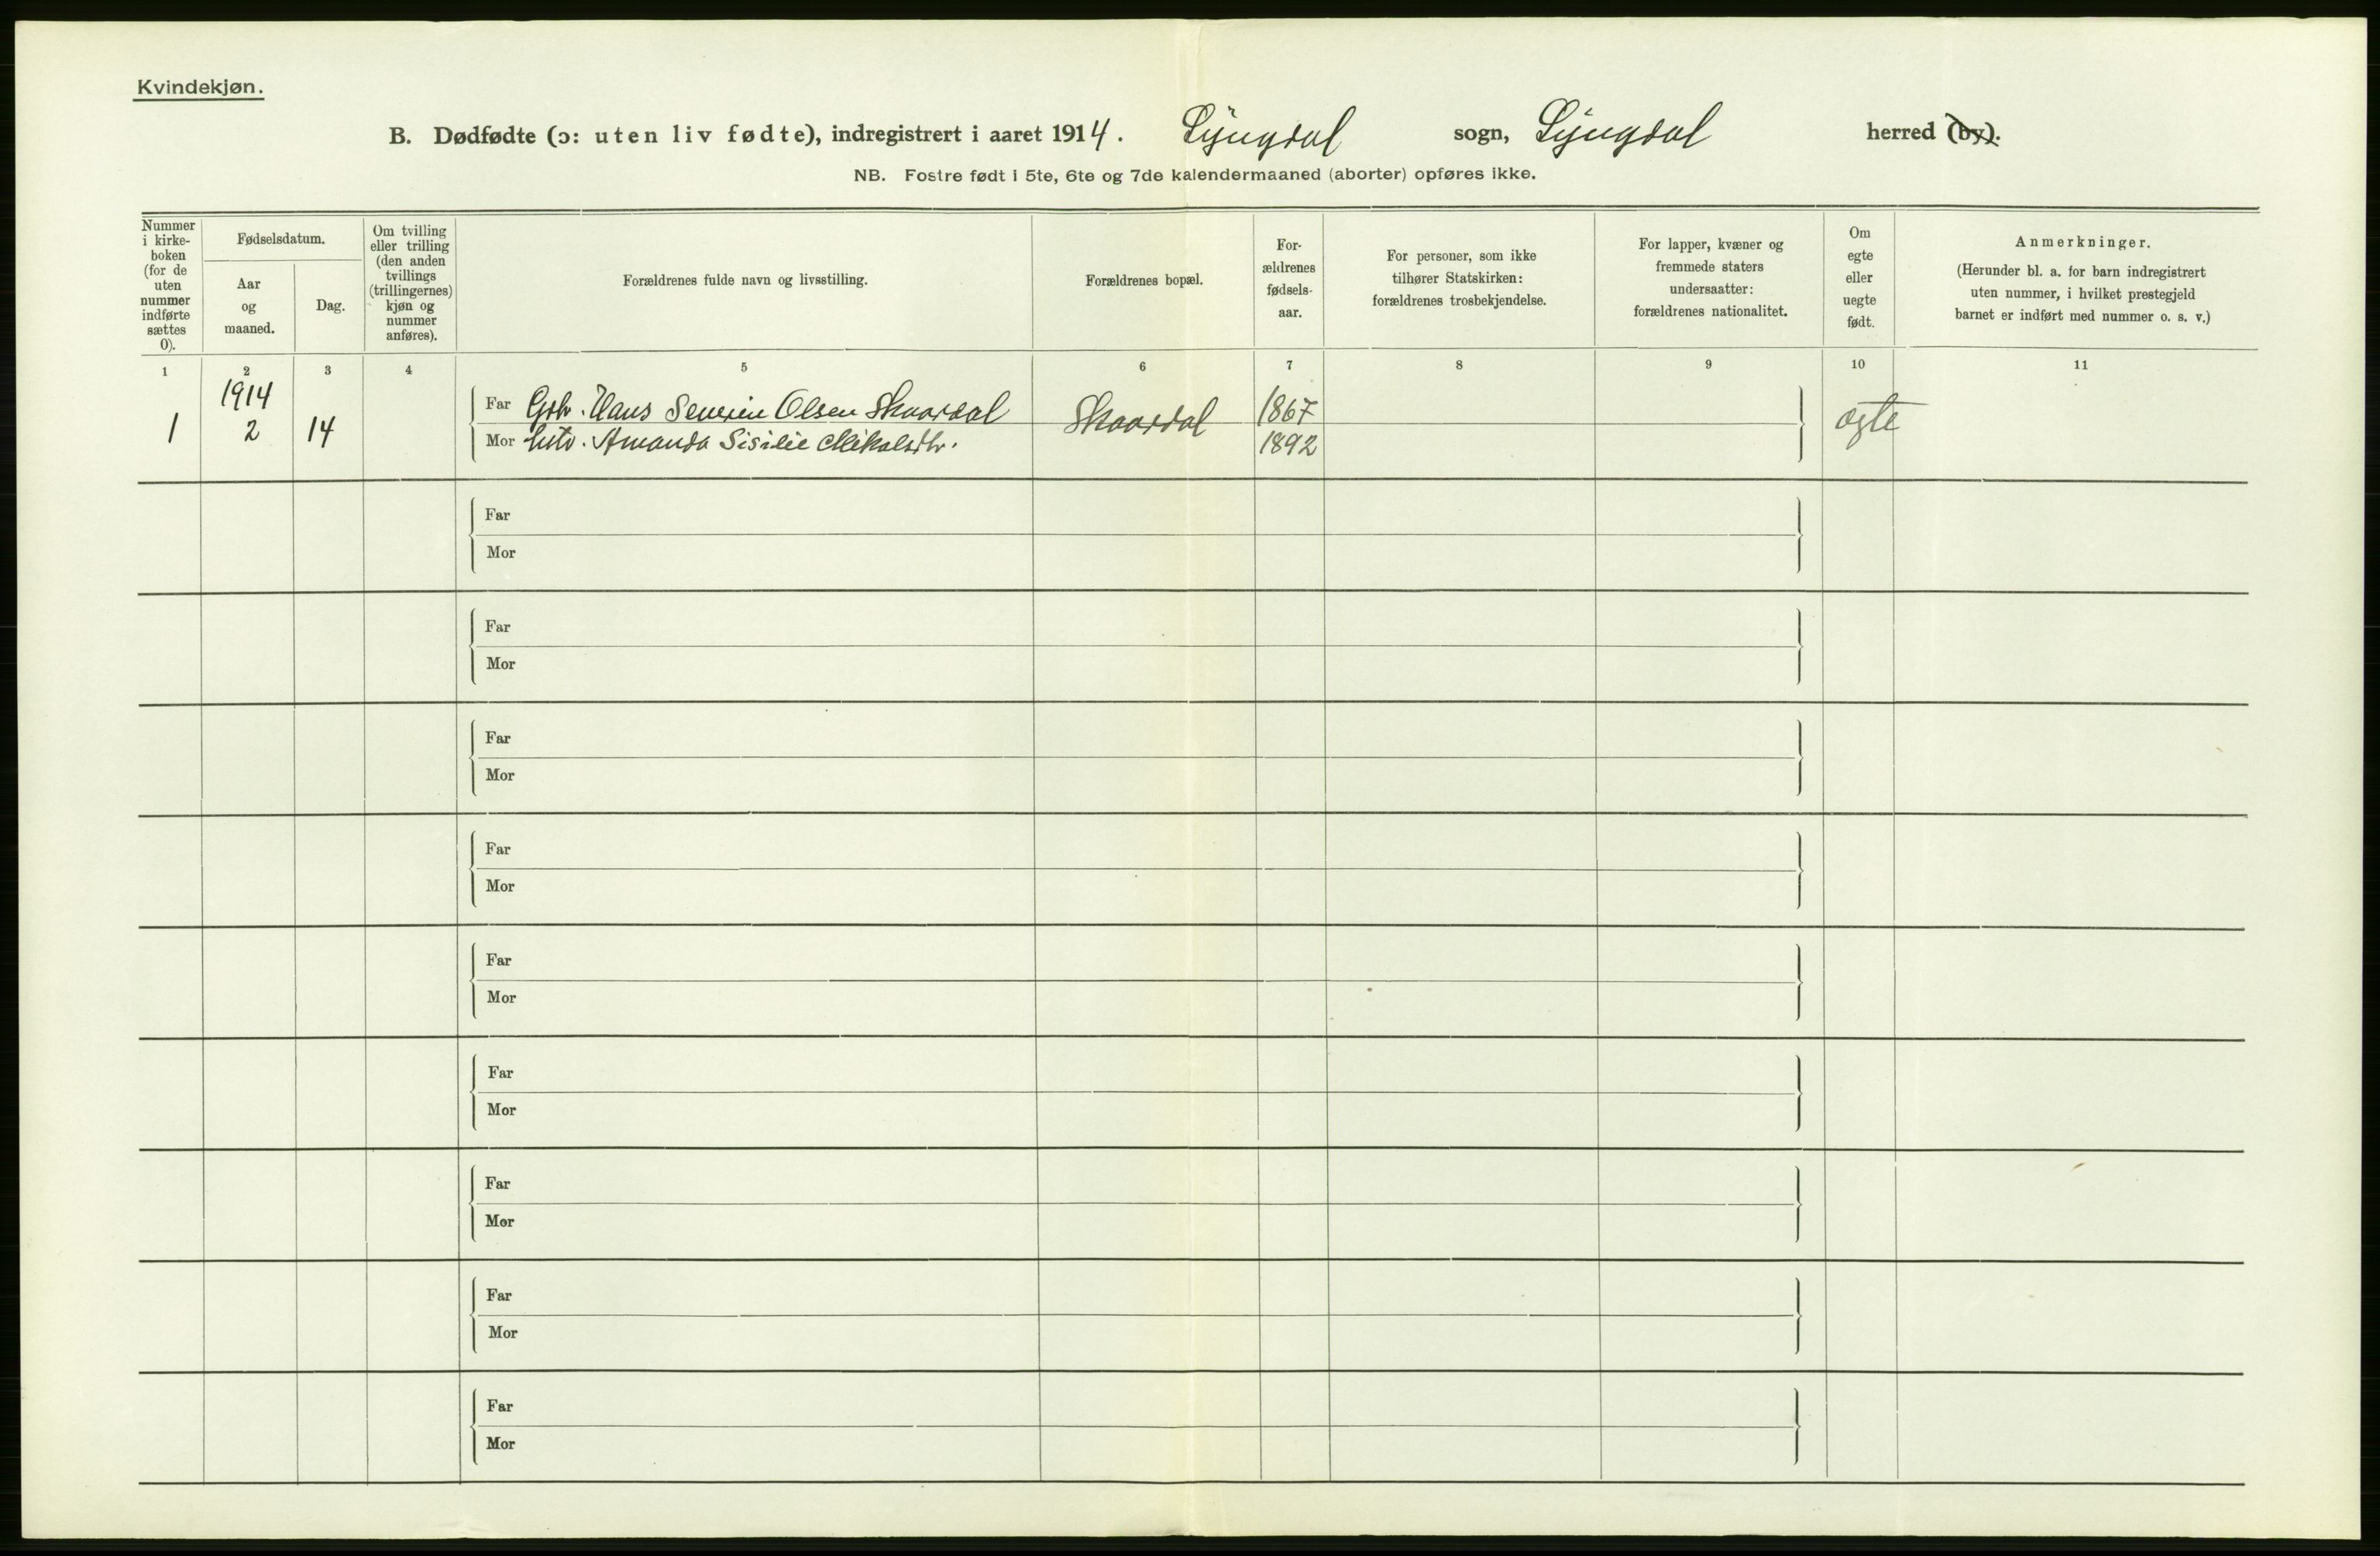 Kvindekjøn.
B. Dødfødte (ɔ: uten liv fødte), indregistrert i aaret 1914. Lyngdal sogn, Lyngdal herred (by).
NB. Fostre født i 5te, 6te og 7de kalendermaaned (aborter) opføres ikke.
Nummer
i kirke-
boken
(for de
uten
nummer
indførte
sættes
0).
Fødselsdatum.
Aar
og
maaned.
Dag.
Om tvilling
eller trilling
(den anden
tvillings
(trillingernes)
kjøn og
nummer
anføres).
Forældrenes fulde navn og livsstilling.
Forældrenes bopæl.
For-
ældrenes
fødsels-
aar.
For personer, som ikke
tilhører Statskirken:
forældrenes trosbekjendelse.
For lapper, kvæner og
fremmede staters
undersaatter:
forældrenes nationalitet.
Om
egte
eller
uegte
født.
Anmerkninger.
(Herunder bl. a. for barn indregistrert
uten nummer, i hvilket prestegjeld
barnet er indført med nummer o. s. v.)
1 2 3 4 5 6 7 8 9 10 11
1914
1 2 14
Far Gbr. Hans Severin Olsen Skaardal
Mor hstr. Amanda Sisilie Mikalsdtr.
Skaardal
1867
1892
egte
Far
Mor
Far
Mor
Far
Mor
Far
Mor
Far
Mor
Far
Mor
Far
Mor
Far
Mor
Far
Mor